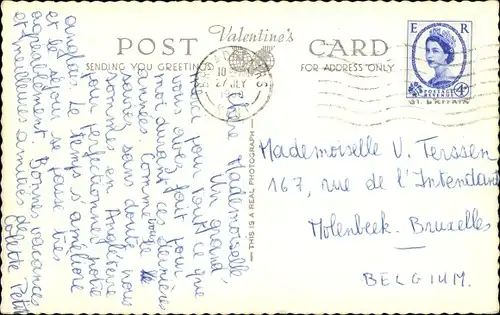 Valentine's
POST CARD
SENDING YOU GREETINGS
FOR ADDRESS ONLY
E R
POSTAGE
REVENUE
THIS IS A REAL PHOTOGRAPH
Chère Mademoiselle,
Un grand
merci pour tout ce que
vous avez fait pour
moi durant ces dernières
années. Comme vous le
savez sans doute nous
sommes en Angleterre
pour perfectionner notre
anglais. Le temps s'améliore
et le séjour se passe très
agréablement. Bonnes vacances
et meilleures amitiés de
Colette Petit
Mademoiselle V. Terssen
167, rue de l'Intendant
Molenbeek-Bruxelles
BELGIUM.